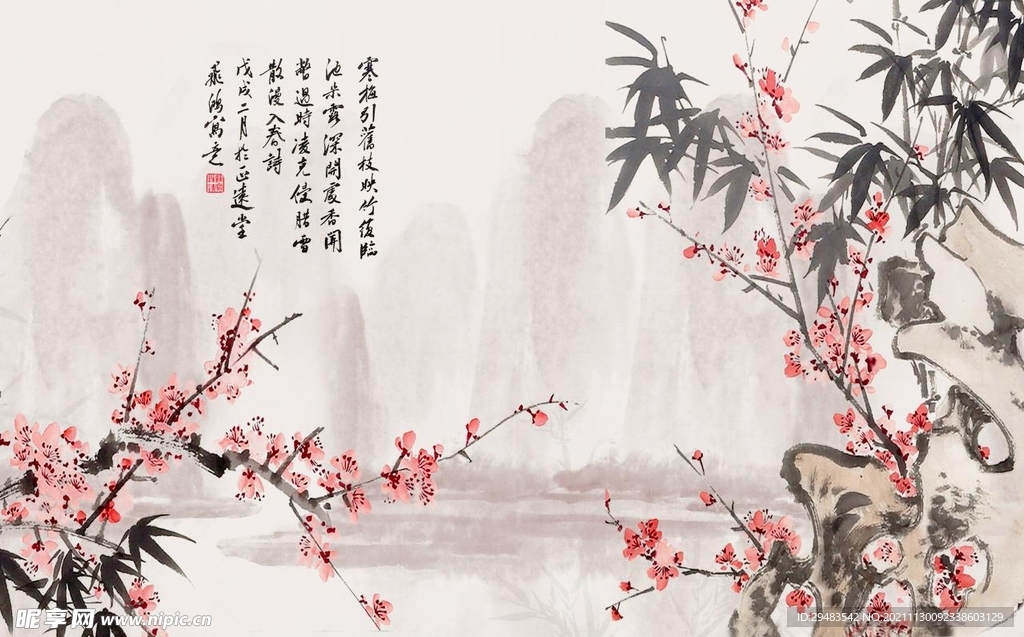 寒梅引舊枝映竹復臨
池朵露深開處香聞
暫過時凌克侵腊雪
散漫入春詩
戊戌二月於正速堂
飛鴻寫意
昵享网 www.nipic.cn
ID:29483542 NO:20211130092338603129